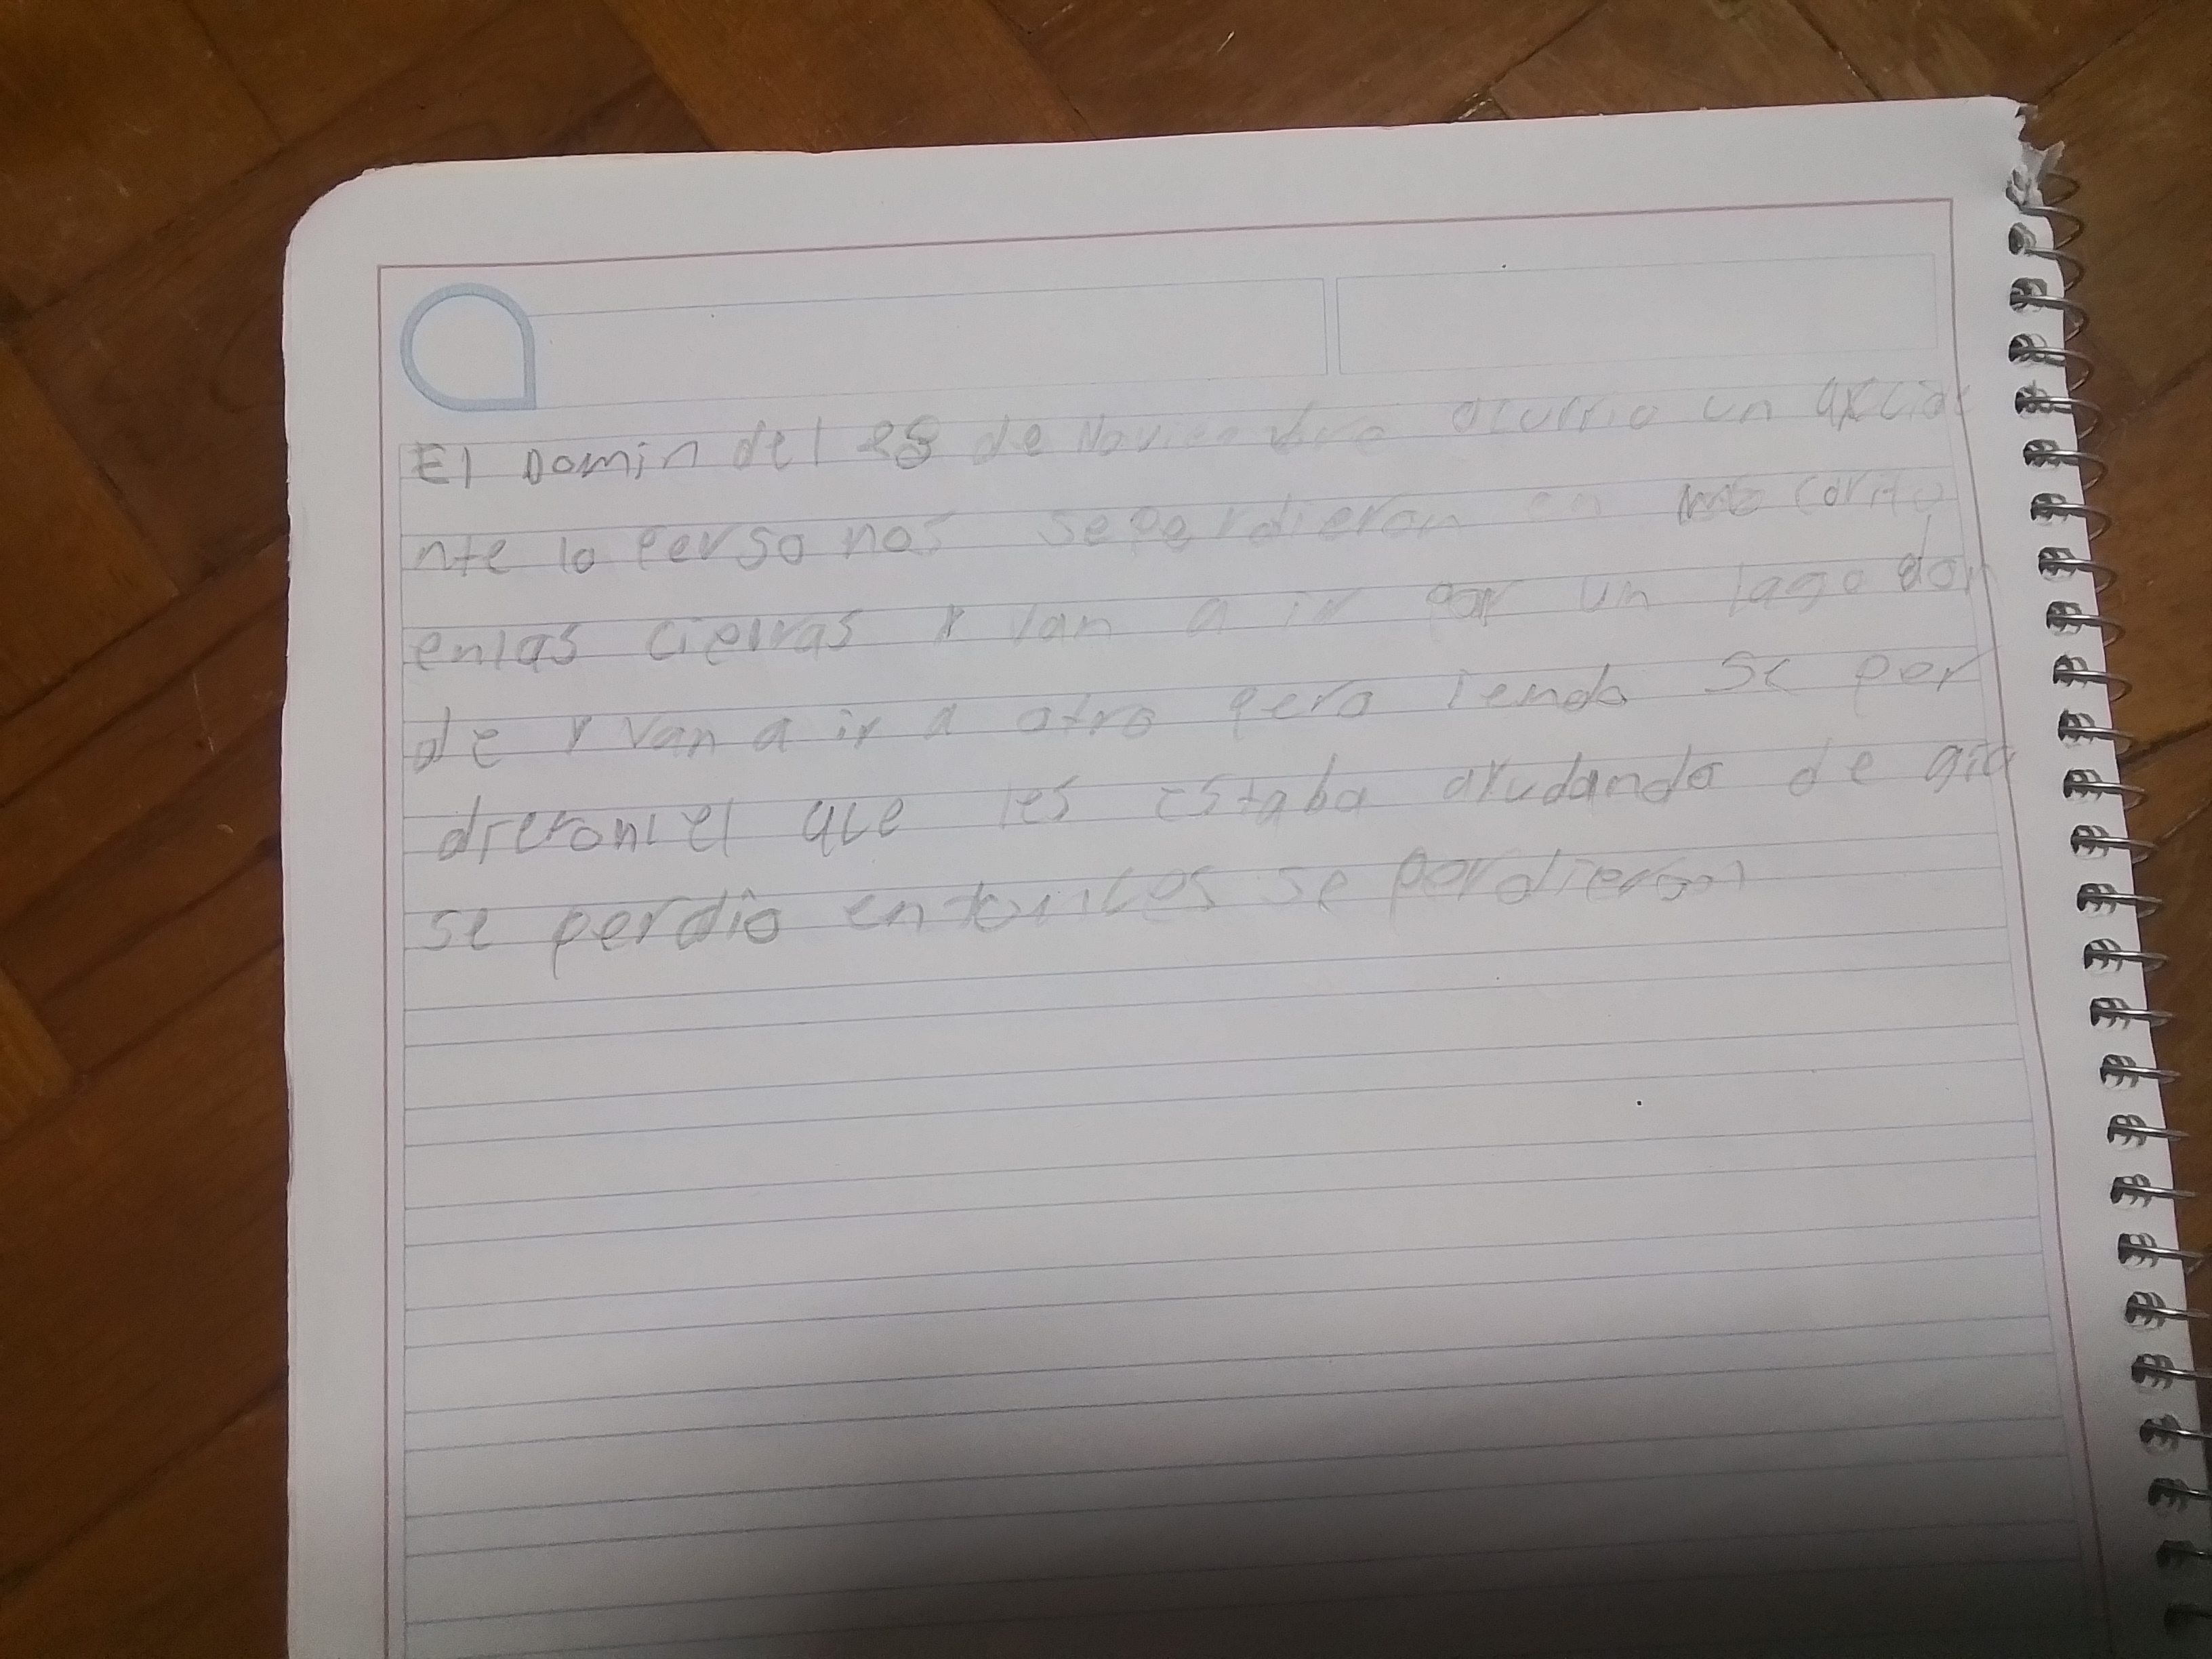 El Domin del 28 de Noviembre ocurrio un axcide
nte la personas seperdieron en
enlas cierras y van a ir por un lago don
de y van a ir a otro pero iendo se per
dieron el que les estaba ayudando de gia
se perdio entonces se perdieron